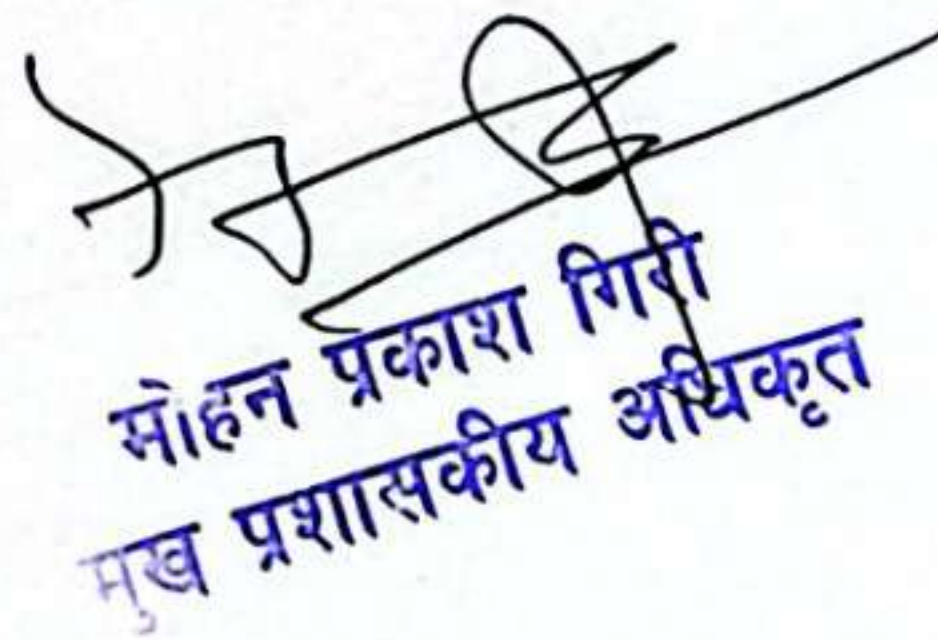 मोहन प्रकाश गिरी
मुख प्रशासकीय अधिकृत